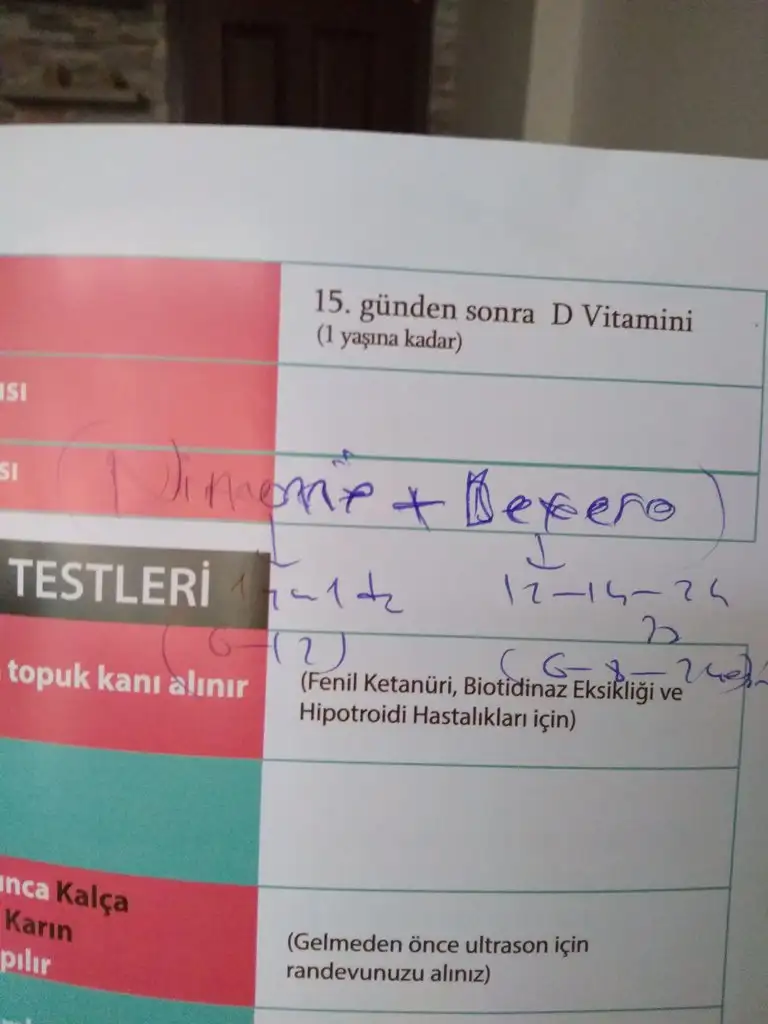 15. günden sonra D Vitamini
(1 yaşına kadar)
ISI
SI
+
TESTLERİ
12-14-24
(6-12)
topuk kanı alınır
(Fenil Ketanüri, Biotidinaz Eksikliği ve
Hipotroidi Hastalıkları için)
ınca Kalça
Karın
pılır
(Gelmeden önce ultrason için
randevunuzu alınız)